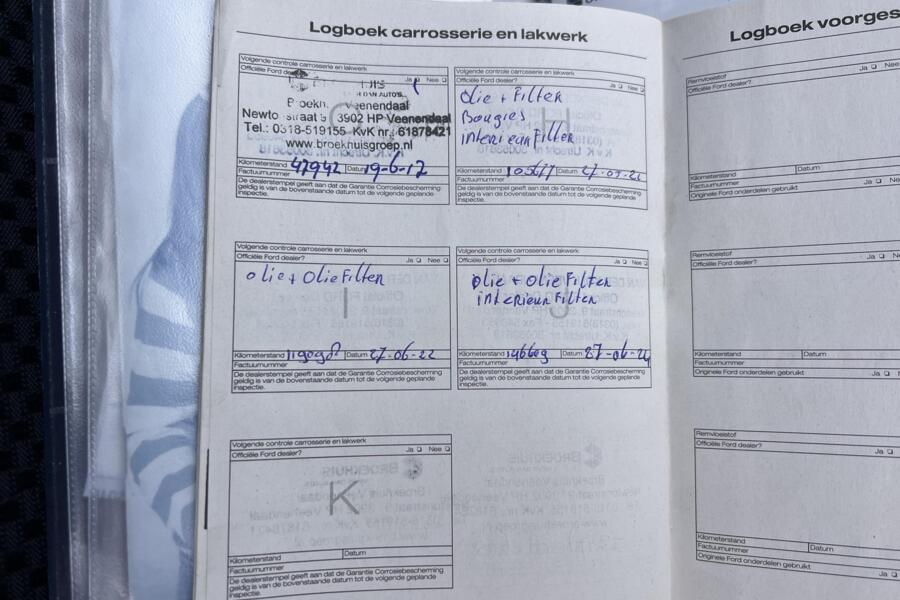 Logboek carrosserie en lakwerk
Volgende controle carrosserie en lakwerk
Officiële Ford dealer?
Ja Nee
Veenendaal
Newto straat 5 3902 HP Veenendaal
Tel.: 0318-519155 KvK nr.: 61878421
www.broekhuisgroep.nl
Kilometerstand 47942 Datum 19-6-17
Factuurnummer
De dealerstempel geeft aan dat de Garantie Corrosiebescherming
geldig is van de bovenstaande datum tot de volgende geplande
inspectie.
Volgende controle carrosserie en lakwerk
Officiële Ford dealer?
Ja Nee
H
Olie + Filter
Bougies
interieur Filter
Kilometerstand 105677 Datum
Factuurnummer
De dealerstempel geeft aan dat de Garantie Corrosiebescherming
geldig is van de bovenstaande datum tot de volgende geplande
inspectie.
Volgende controle carrosserie en lakwerk
Officiële Ford dealer?
Ja Nee
I
olie + Olie Filter
Kilometerstand Datum 27-06-22
Factuurnummer
De dealerstempel geeft aan dat de Garantie Corrosiebescherming
geldig is van de bovenstaande datum tot de volgende geplande
inspectie.
Volgende controle carrosserie en lakwerk
Officiële Ford dealer?
Ja Nee
J
olie + olie Filter
interieur Filter
Kilometerstand 146609 Datum 27-06-24
Factuurnummer
De dealerstempel geeft aan dat de Garantie Corrosiebescherming
geldig is van de bovenstaande datum tot de volgende geplande
inspectie.
Volgende controle carrosserie en lakwerk
Officiële Ford dealer?
Ja Nee
K
Kilometerstand Datum
Factuurnummer
De dealerstempel geeft aan dat de Garantie Corrosiebescherming
geldig is van de bovenstaande datum tot de volgende geplande
inspectie.
Logboek voorges
Remvloeistof
Ja Nee
Officiële Ford dealer?
Kilometerstand Datum
Factuurnummer
Originele Ford onderdelen gebruikt Ja Nee
Remvloeistof
Ja Nee
Officiële Ford dealer?
Kilometerstand Datum
Factuurnummer
Originele Ford onderdelen gebruikt Ja
Remvloeistof
Officiële Ford dealer?
Ja
Kilometerstand Datum
Factuurnummer
Originele Ford onderdelen gebruikt
Ja